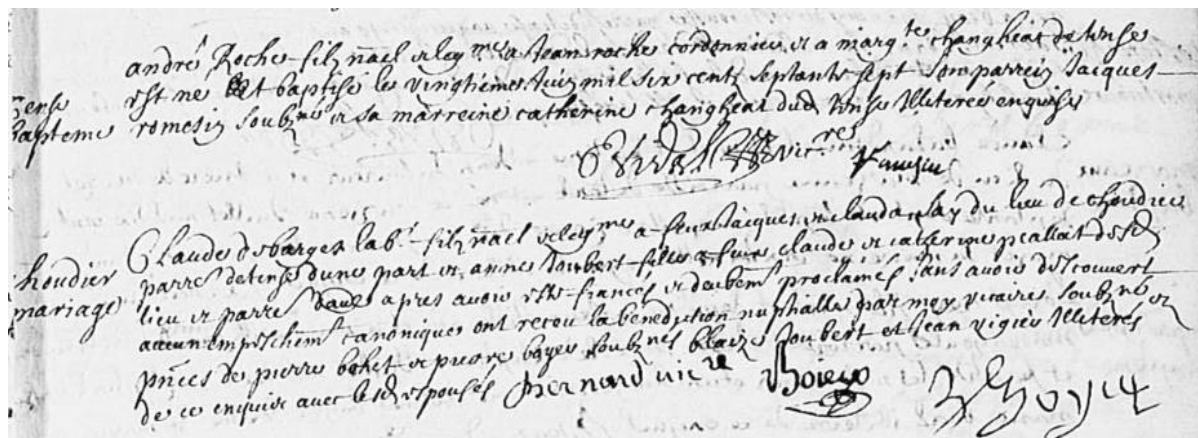 andré Roche filz nāel et legme a Jean roche cordonnier et a margte changheat de tense
Tense est ne et baptisé le vingtiéme Juin mil six cents septante sept son parrein Jacques
bapteme romesin soubzné et sa marreine catherine changheat dud tense Illiteree enquise
vicres
Claude desbarges labr filz nāel et legme a feux Jacques et clauda du lieu de choudier
Choudier parre de tense dune part et anne Joubert fille a feux claude et catherine piallait desd
mariage lieu et parre daue apres avoir esté fiancés et deubemt proclamés sans avoir descouvert
aucun empeschemt canonique ont receu la benediction nuptialle par moy vicaire soubzné et
pñces de pierre bohet et pierre boyer soubznés blaize Joubert et Jean vigier Illiterés
de ce enquis avec lesd espousés Bernard vicre Boieyo